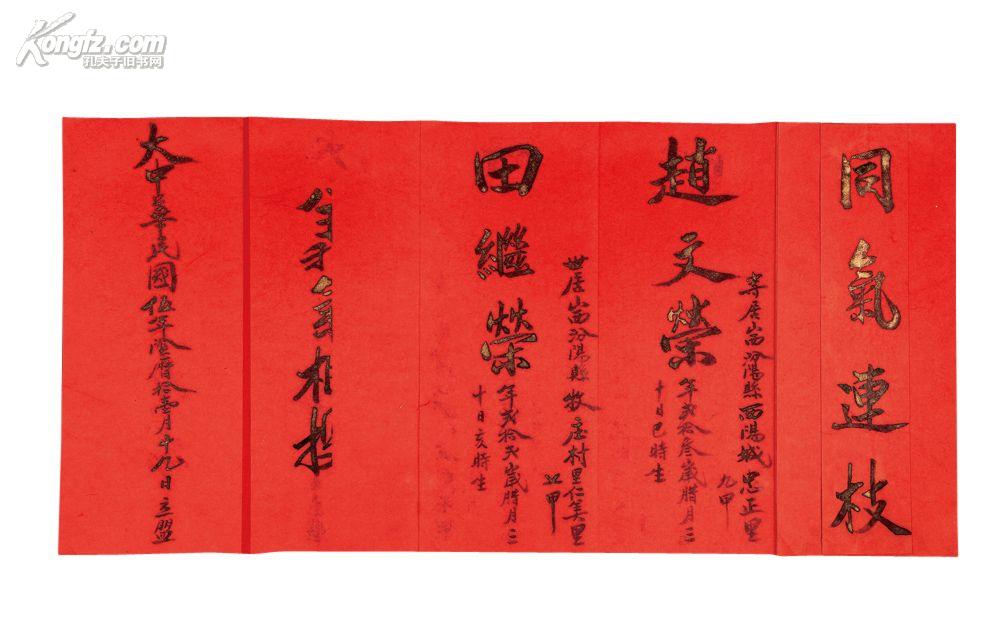 Kongfz.com
孔夫子旧书网
同氣連枝
寄居山西汾陽縣西陽城忠正里
九甲
趙文榮
年弍拾叁歲腊月三
十日巳時生
世居山西汾陽縣牧庄村里仁美里
五甲
田繼榮
年弍拾弍歲腊月三
十日亥時生
大中華民國伍年陰曆拾壹月十九日立盟